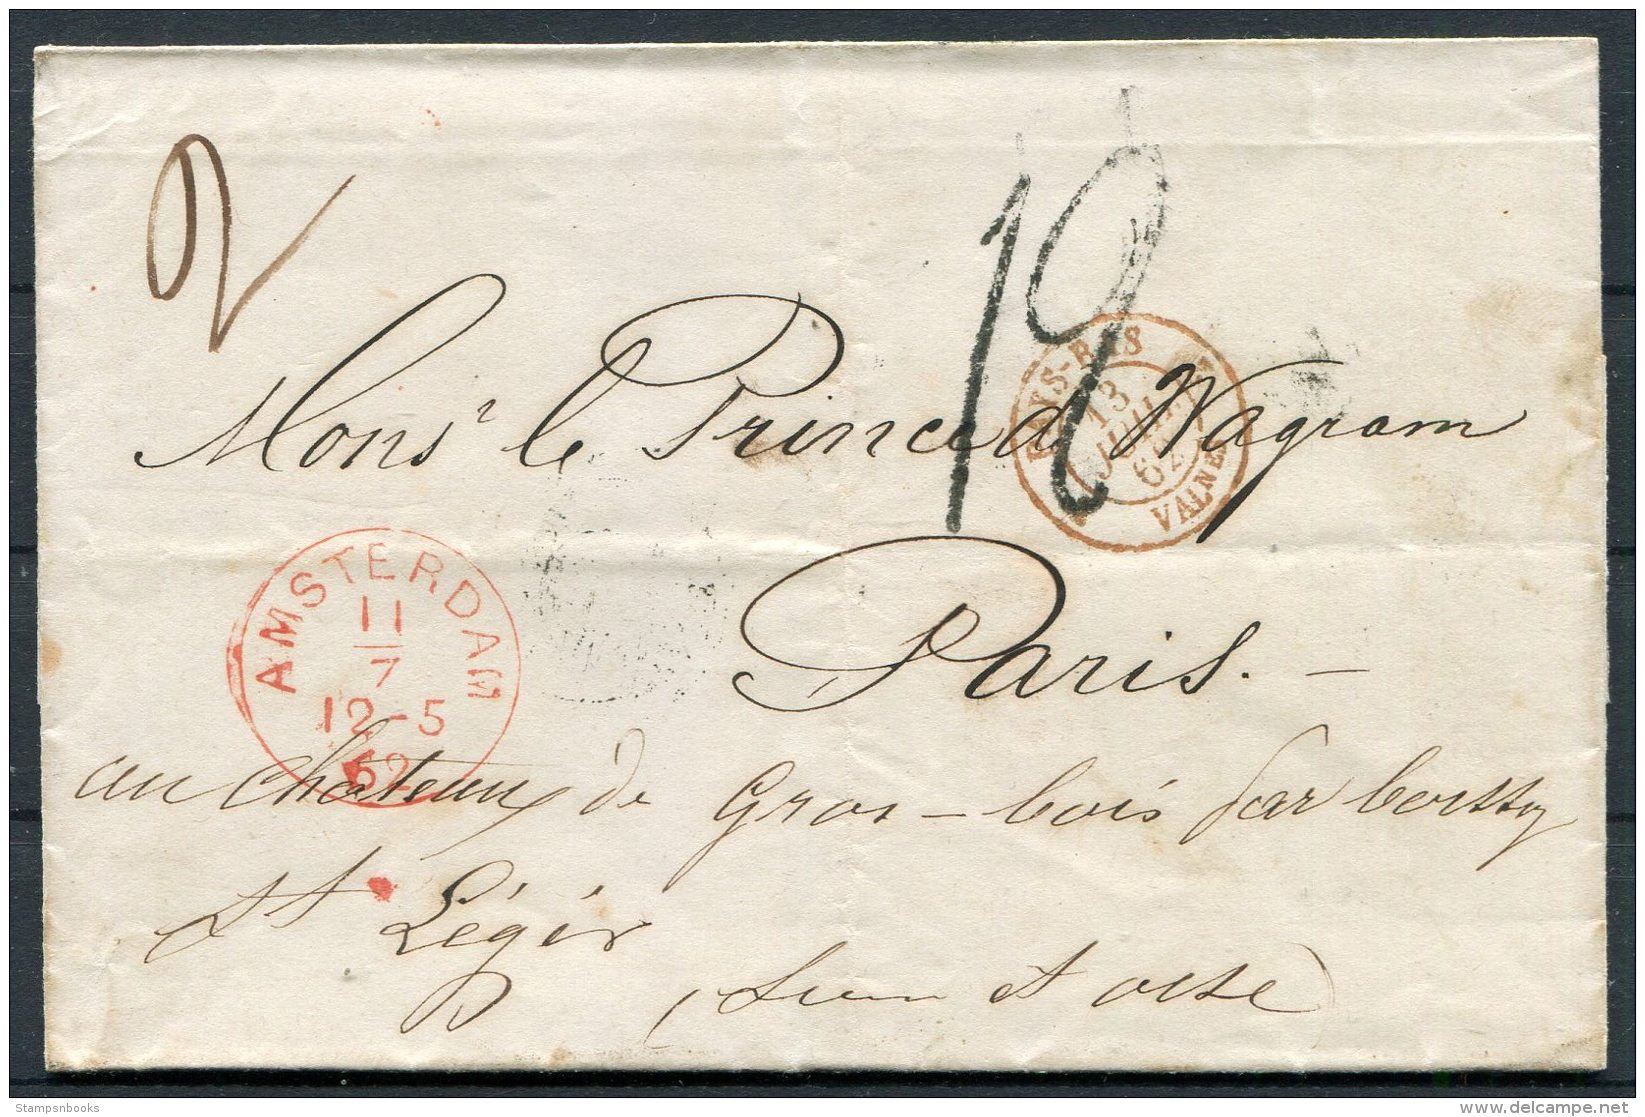 2
12
Monsr le Prince de Wagram
PAYS-BAS
13
JUIL
62
VALNES
Paris. -
AMSTERDAM
11
7
12-5
62
au chateau de Gros-bois par boissy
St Léger
(Seine et oise)
Stampsnbooks
delcampe.net